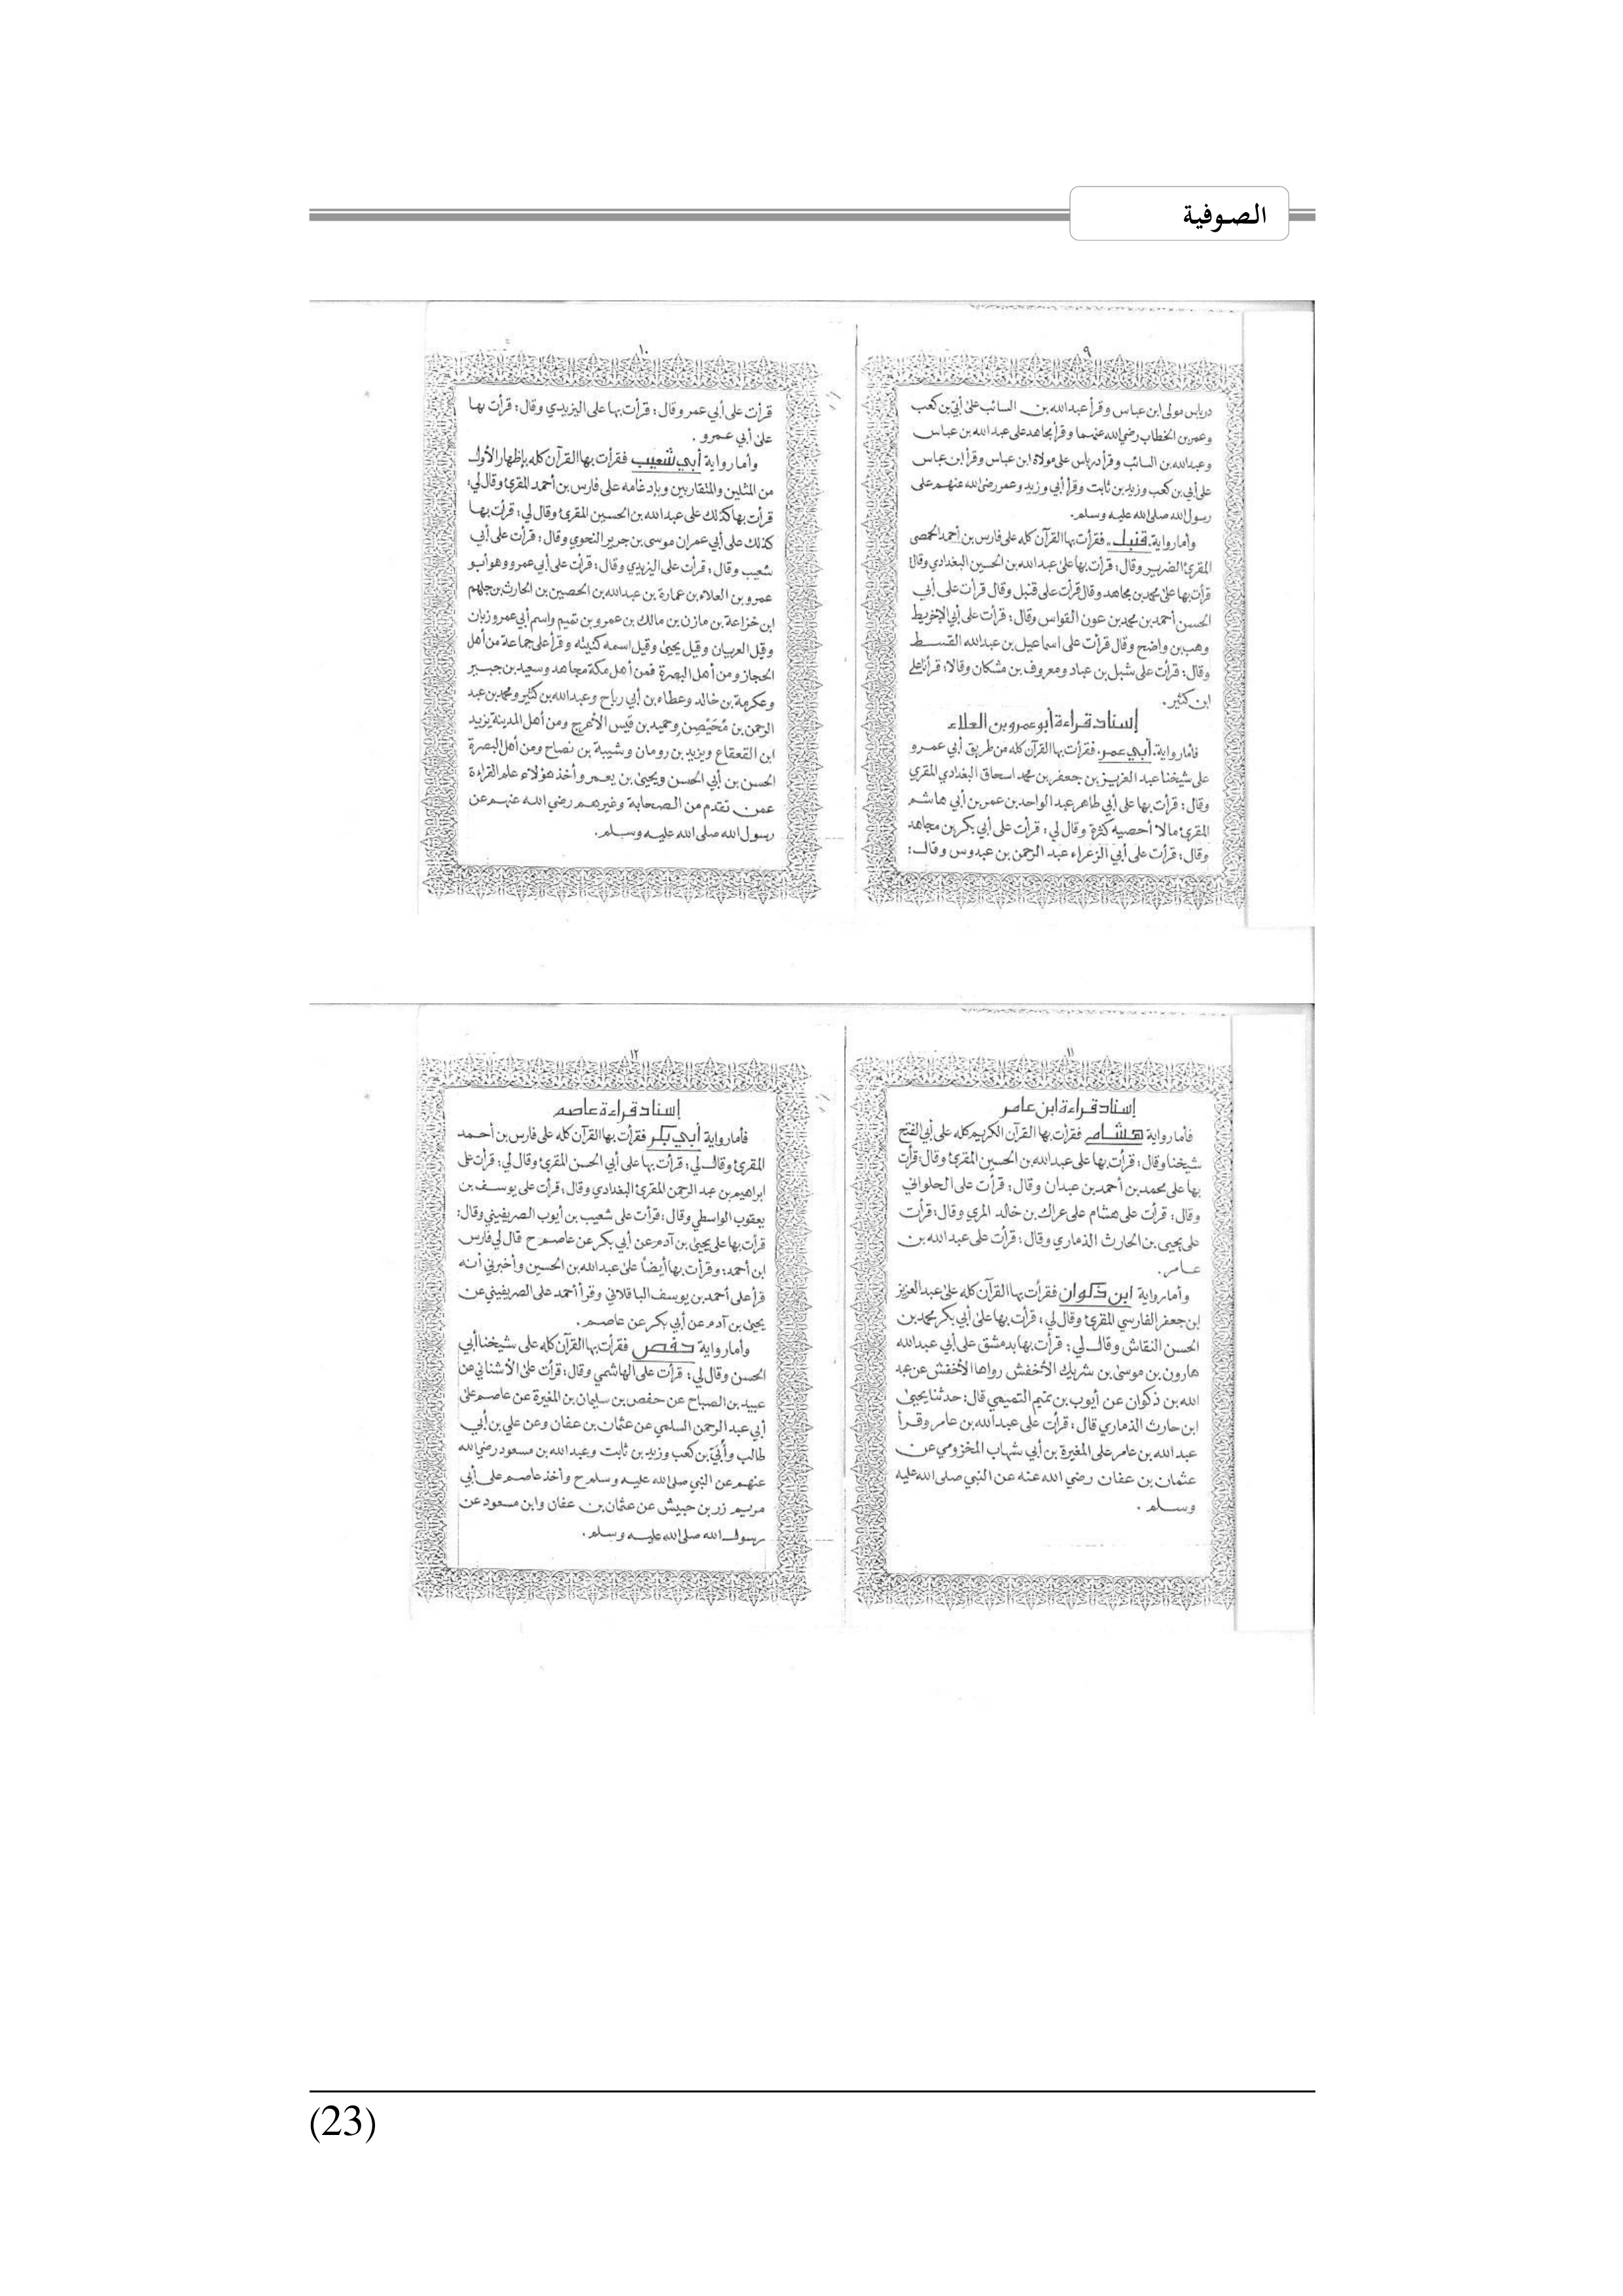 الصوفية
٩
درباس مولى ابن عباس وقرأ عبدالله بن السائب على أبيّ بن كعب
وعمر بن الخطاب رضي الله عنهما وقرأ مجاهد على عبد الله بن عباس
وعبدالله بن السائب وقرأ درباس على مولاه ابن عباس وقرأ ابن عباس
على أبي بن كعب وزيد بن ثابت وقرأ أبي وزيد وعمر رضي الله عنهم على
رسول الله صلى الله عليه وسلم.
وأما رواية قنبل فقرأت بها القرآن كله على فارس بن أحمد الحمصي
المقرئ الضرير وقال: قرأت بها على عبد الله بن الحسين البغدادي وقال
قرأت بها على محمد بن مجاهد وقال قرأت على قنبل وقال قرأت على أبي
الحسن أحمد بن محمد بن عون القواس وقال: قرأت على أبي الإخريط
وهب بن واضح وقال قرأت على اسماعيل بن عبدالله القسط
وقال: قرأت على شبل بن عباد ومعروف بن مشكان وقالا: قرأنا على
ابن كثير.
إسناد قراءة أبو عمرو بن العلاء
فأما رواية أبي عمر فقرأت بها القرآن كله من طريق أبي عمرو
على شيخنا عبد العزيز بن جعفر بن محمد اسحاق البغدادي المقري
وقال: قرأت بها على أبي طاهر عبد الواحد بن عمر بن أبي هاشم
المقرئ مالا أحصيه كثرة وقال لي: قرأت على أبي بكر بن مجاهد
وقال: قرأت على أبي الزعراء عبد الرحمن بن عبدوس وقال:
١٠
قرأت على أبي عمر وقال: قرأت بها على اليزيدي وقال: قرأت بها
على أبي عمرو.
وأما رواية أبي شعيب فقرأت بها القرآن كله بإظهار الأول
من المثلين والمتقاربين وبإدغامه على فارس بن أحمد المقرئ وقال لي:
قرأت بها كذلك على عبد الله بن الحسين المقرئ وقال لي: قرأت بها
كذلك على أبي عمران موسى بن جرير النحوي وقال: قرأت على أبي
شعيب وقال: قرأت على اليزيدي وقال: قرأت على أبي عمرو وهو أبو
عمرو بن العلاء بن عمارة بن عبدالله بن الحصين بن الحارث بن جلهم
ابن خزاعة بن مازن بن مالك بن عمرو بن تميم واسم أبي عمرو زبان
وقيل العريان وقيل يحيى وقيل اسمه كنيته وقرأ على جماعة من أهل
الحجاز ومن أهل البصرة فمن أهل مكة مجاهد وسعيد بن جبير
وعكرمة بن خالد وعطاء بن أبي رباح وعبدالله بن كثير ومحمد بن عبد
الرحمن بن مُحَيْصِن وحميد بن قيس الأعرج ومن أهل المدينة يزيد
ابن القعقاع ويزيد بن رومان وشيبة بن نصاح ومن أهل البصرة
الحسن بن أبي الحسن ويحيى بن يعمر وأخذ هؤلاء علم القراءة
عمن تقدم من الصحابة وغيرهم رضي الله عنهم عن
رسول الله صلى الله عليه وسلم.
١١
إسناد قراءة ابن عامر
فأما رواية هشام فقرأت بها القرآن الكريم كله على أبي الفتح
شيخنا وقال: قرأت بها على عبدالله بن الحسين المقرئ وقال: قرأت
بها على محمد بن أحمد بن عبدان وقال: قرأت على الحلواني
وقال: قرأت على هشام على عراك بن خالد المري وقال: قرأت
على يحيى بن الحارث الذماري وقال: قرأت على عبد الله بن
عامر.
وأما رواية ابن ذكوان فقرأت بها القرآن كله على عبد العزيز
ابن جعفر الفارسي المقرئ وقال لي: قرأت بها على أبي بكر محمد بن
الحسن النقاش وقال لي: قرأت بها بدمشق على أبي عبدالله
هارون بن موسى بن شريك الأخفش رواها الأخفش عن عبد
الله بن ذكوان عن أيوب بن تميم التميمي قال: حدثنا يحيى
ابن حارث الذماري قال: قرأت على عبدالله بن عامر وقرأ
عبد الله بن عامر على المغيرة بن أبي شهاب المخزومي عن
عثمان بن عفان رضي الله عنه عن النبي صلى الله عليه
وسلم.
١٢
إسناد قراءة عاصم
فأما رواية أبي بكر فقرأت بها القرآن كله على فارس بن أحمد
المقرئ وقال لي: قرأت بها على أبي الحسن المقرئ وقال لي: قرأت على
ابراهيم بن عبد الرحمن المقرئ البغدادي وقال: قرأت على يوسف بن
يعقوب الواسطي وقال: قرأت على شعيب بن أيوب الصريفيني وقال:
قرأت بها على يحيى بن آدم عن أبي بكر عن عاصم ح قال لي فارس
ابن أحمد: وقرأت بها أيضاً على عبدالله بن الحسين وأخبرني أنه
قرأ على أحمد بن يوسف الباقلاني وقرأ أحمد على الصريفيني عن
يحيى بن آدم عن أبي بكر عن عاصم.
وأما رواية حفص فقرأت بها القرآن كله على شيخنا أبي
الحسن وقال لي: قرأت على الهاشمي وقال: قرأت على الأشناني عن
عبيد بن الصباح عن حفص بن سليمان بن المغيرة عن عاصم على
أبي عبد الرحمن السلمي عن عثمان بن عفان وعن علي بن أبي
طالب وأُبَيّ بن كعب وزيد بن ثابت وعبد الله بن مسعود رضي الله
عنهم عن النبي صلى الله عليه وسلم ح وأخذ عاصم على أبي
مريم زر بن حبيش عن عثمان بن عفان وابن مسعود عن
رسول الله صلى الله عليه وسلم.
(23)